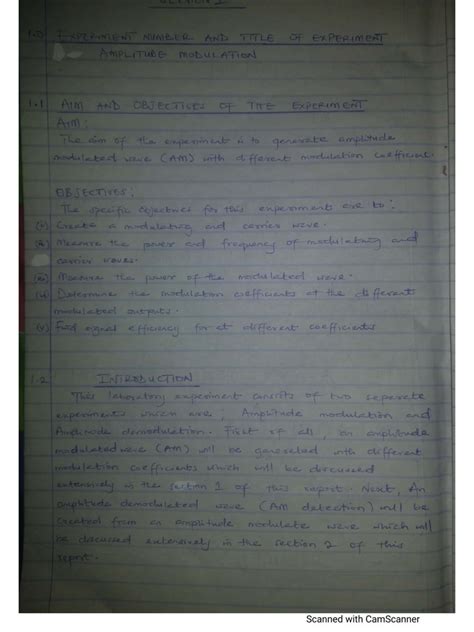 SECTION 1
1.0 EXPERIMENT NUMBER AND TITLE OF EXPERIMENT
AMPLITUDE MODULATION
1.1 AIM AND OBJECTIVES OF THE EXPERIMENT
AIM:
The aim of the experiment is to generate amplitude
modulated wave (AM) with different modulation coefficient.
OBJECTIVES:
The specific objectives for this experiment are to:
(i) Create a modulating and carrier wave.
(ii) Measure the power and frequency of modulating and
carrier waves.
(iii) Measure the power of the modulated wave.
(iv) Determine the modulation coefficients at the different
modulated outputs.
(v) Find signal efficiency for at different coefficients
1.2 INTRODUCTION
This laboratory experiment consists of two separate
experiments which are; Amplitude modulation and
Amplitude demodulation. First of all, an amplitude
modulated wave (AM) will be generated with different
modulation coefficients which will be discussed
extensively in the section 1 of this report. Next, An
amplitude demodulated wave (AM detection) will be
created from an amplitude modulate wave which will
be discussed extensively in the section 2 of this
report.
Scanned with CamScanner